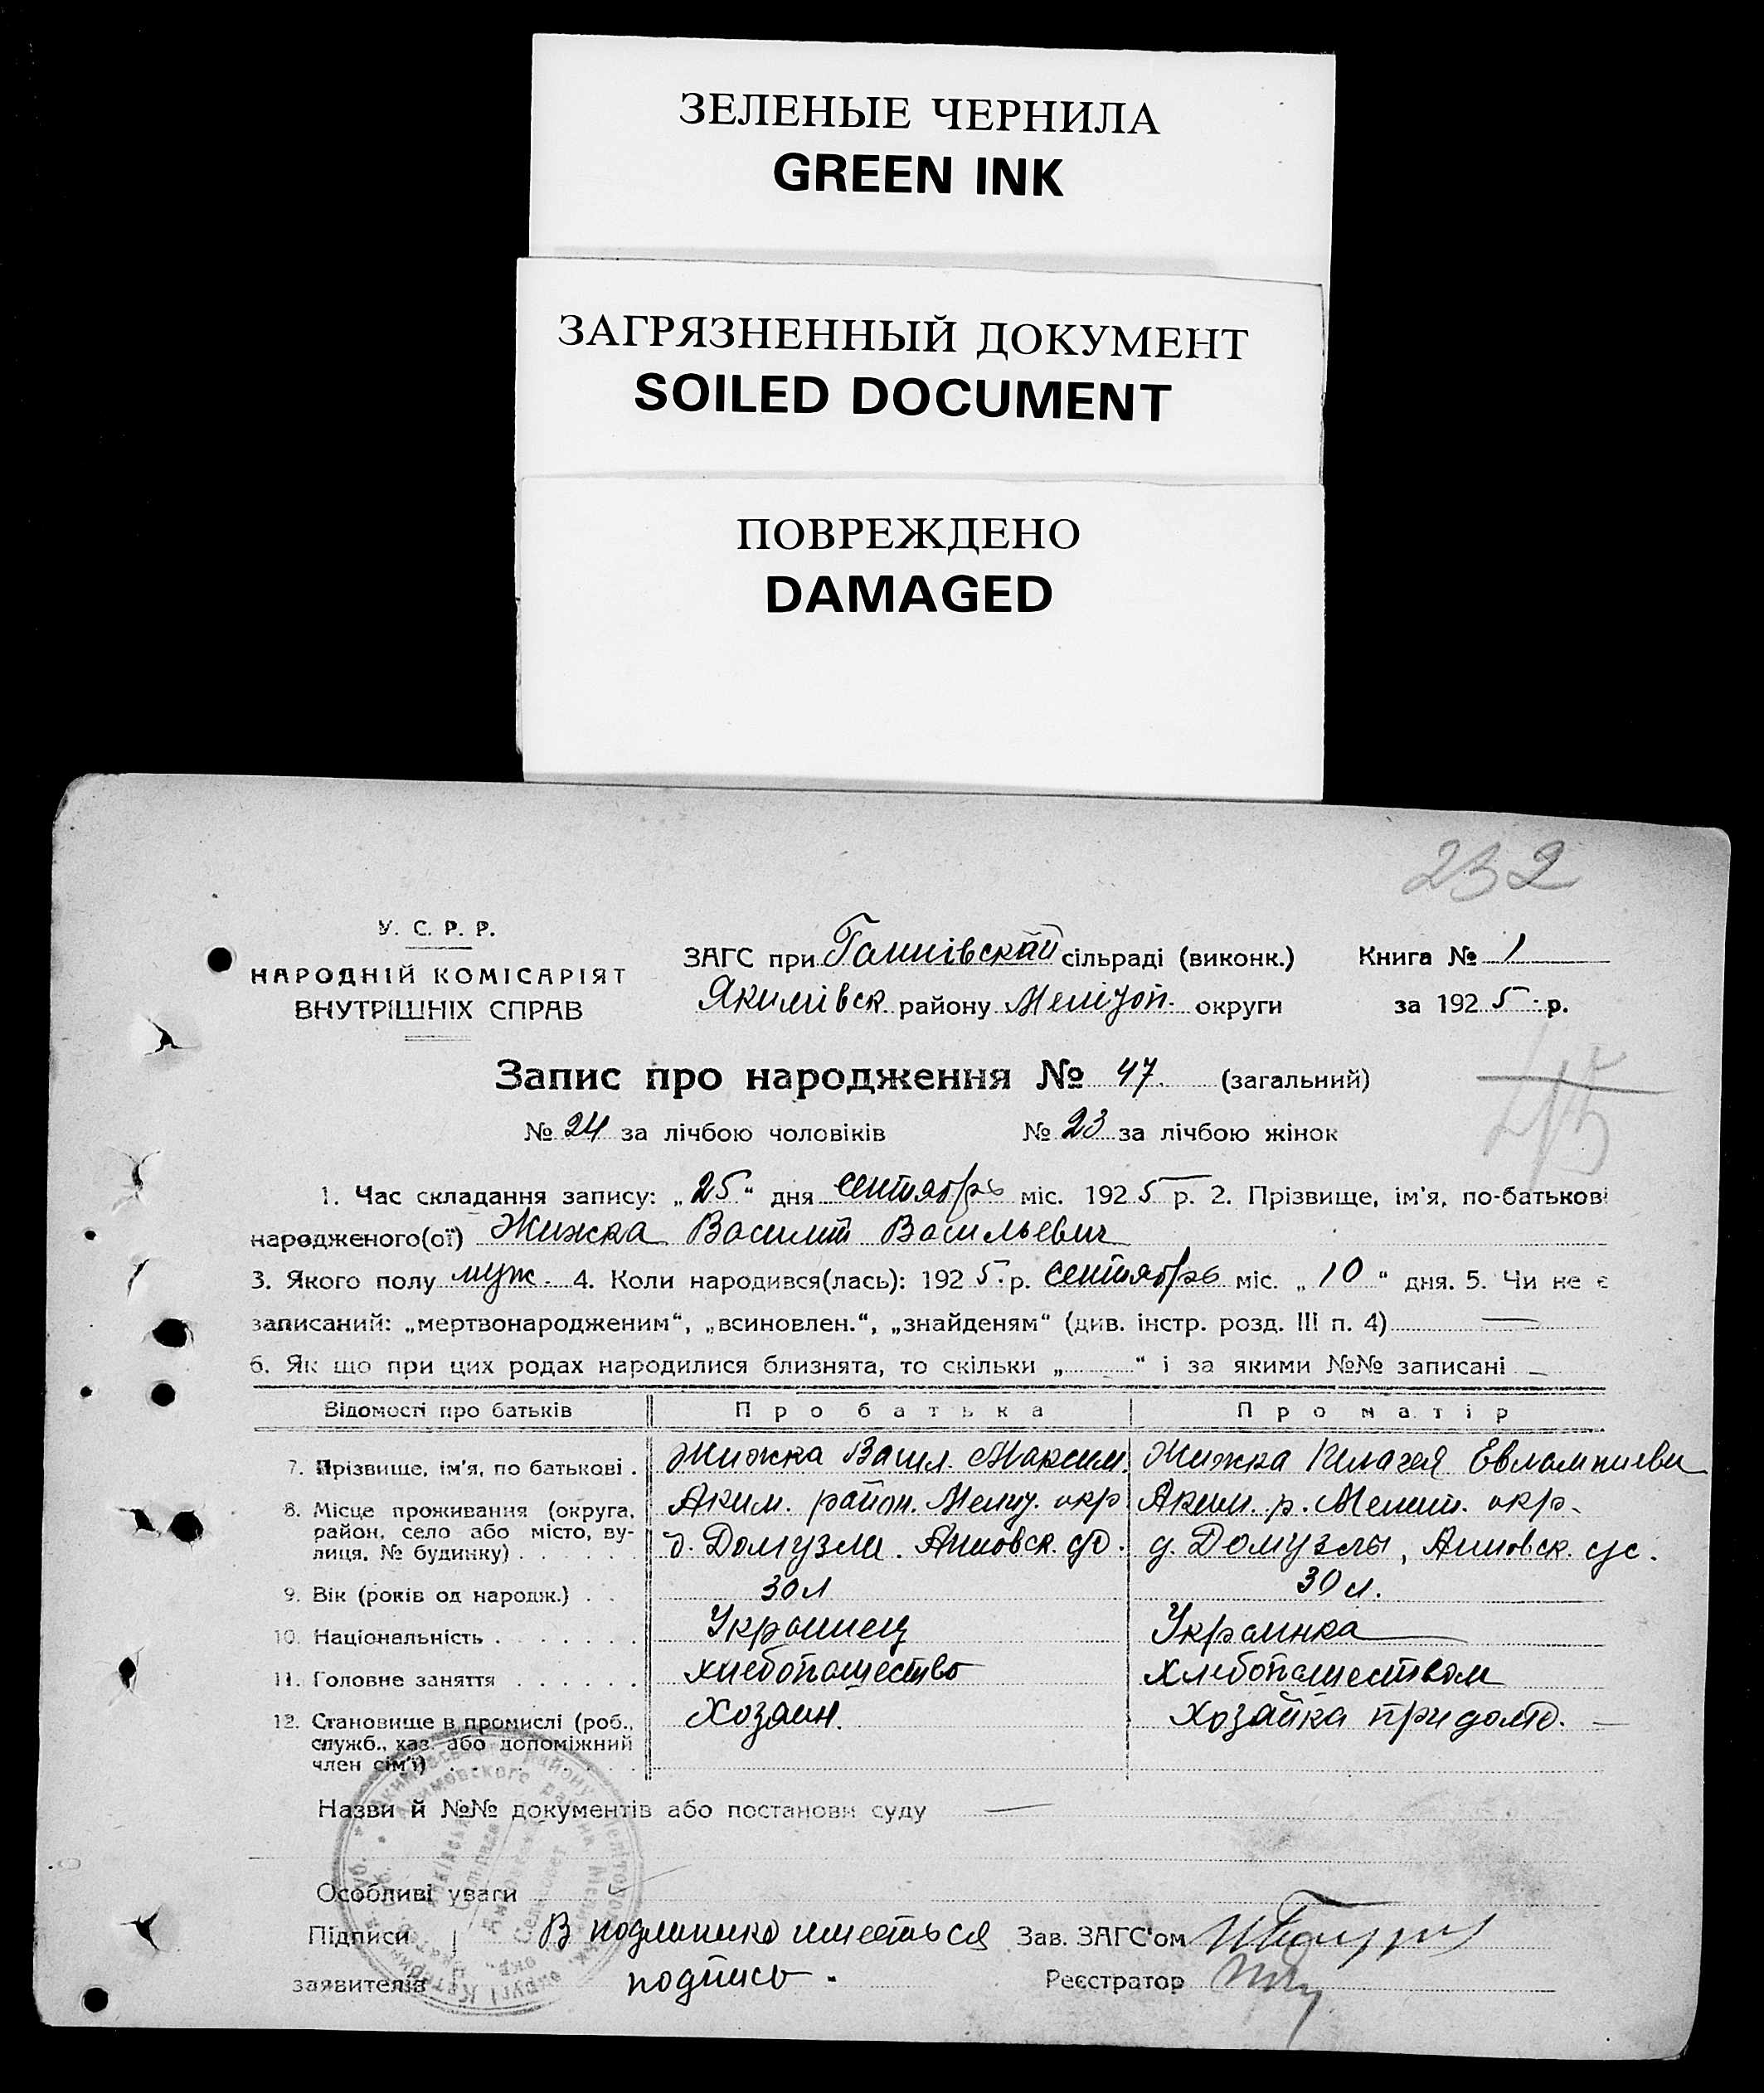 ЗЕЛЕНЫЕ ЧЕРНИЛА
GREEN INK
ЗАГРЯЗНЕННЫЙ ДОКУМЕНТ
SOILED DOCUMENT
ПОВРЕЖДЕНО
DAMAGED
232
У. С. Р. Р.
НАРОДНІЙ КОМІСАРІЯТ
ВНУТРІШНІХ СПРАВ
ЗАГС при Ганнівскій сільраді (виконк.) Книга № 1
Якимівск. району Мелітоп. округи за 1925 р.
Запис про народження № 47. (загальний)
45
№ 24 за лічбою чоловіків № 23 за лічбою жінок
1. Час складання запису: „25“ дня сентябрь міс. 1925 р. 2. Прізвище, ім'я, по-батькові
народженого(ої) Жижка Василий Васильевич
3. Якого полу муж. 4. Коли народився(лась): 1925. р. сентябрь міс. „10“ дня. 5. Чи не є
записаний: „мертвонародженим“, „всиновлен.“, „знайденям“ (див. інстр. розд. III п. 4) —
6. Як що при цих родах народилися близнята, то скільки „ “ і за якими №№ записані —
Відомості про батьків Про батька Про матір
7. Прізвище, ім'я, по батькові . Жижка Васил. Максим. Жижка Пелагея Евлампиевн
8. Місце проживання (округа, Аким. район. Мелит. окр Аким. р. Мелит. окр.
район, село або місто, ву-
лиця, № будинку) . . . . . . д. Домузлы. Анновск. с/с. д. Домузлы, Анновск. с/с.
9. Вік (років од народж.) . . 30 л 30 л.
10. Національність . . . . . . . Украинец Украинка
11. Головне заняття . . . . . . хлебопашество хлебопашеством
12. Становище в промислі (роб., Хозаин. хозайка при домо. —
служб., хаз. або допоміжний
член сім'ї) . . . . . . . .
Назви й №№ документів або постанови суду —
Особливі уваги
Підписи В подлинико имееться Зав. ЗАГС'ом
заявителів подпись. Реєстратор